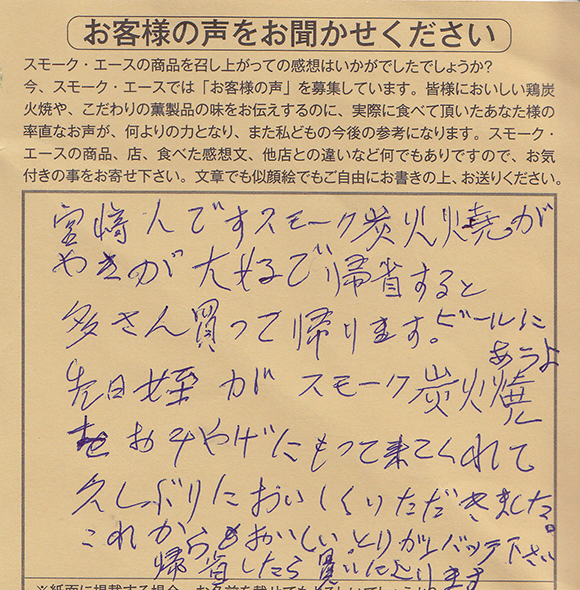 お客様の声をお聞かせください
スモーク・エースの商品を召し上がっての感想はいかがでしたでしょうか?
今、スモーク・エースでは「お客様の声」を募集しています。皆様においしい鶏炭
火焼や、こだわりの薫製品の味をお伝えするのに、実際に食べて頂いたあなた様の
率直なお声が、何よりの力となり、また私どもの今後の参考になります。スモーク・
エースの商品、店、食べた感想文、他店との違いなど何でもありですので、お気
付きの事をお寄せ下さい。文章でも似顔絵でもご自由にお書きの上、お送りください。
宮崎人ですスモーク炭火焼が
やきが大好で帰省すると
多さん買って帰ります。ビールに
あうよ
先日姪がスモーク炭火焼
をおみやげにもって来てくれて
久しぶりにおいしくいただきました。
これからもおいしいとりがんバッテ下さい
帰省したら買いによります